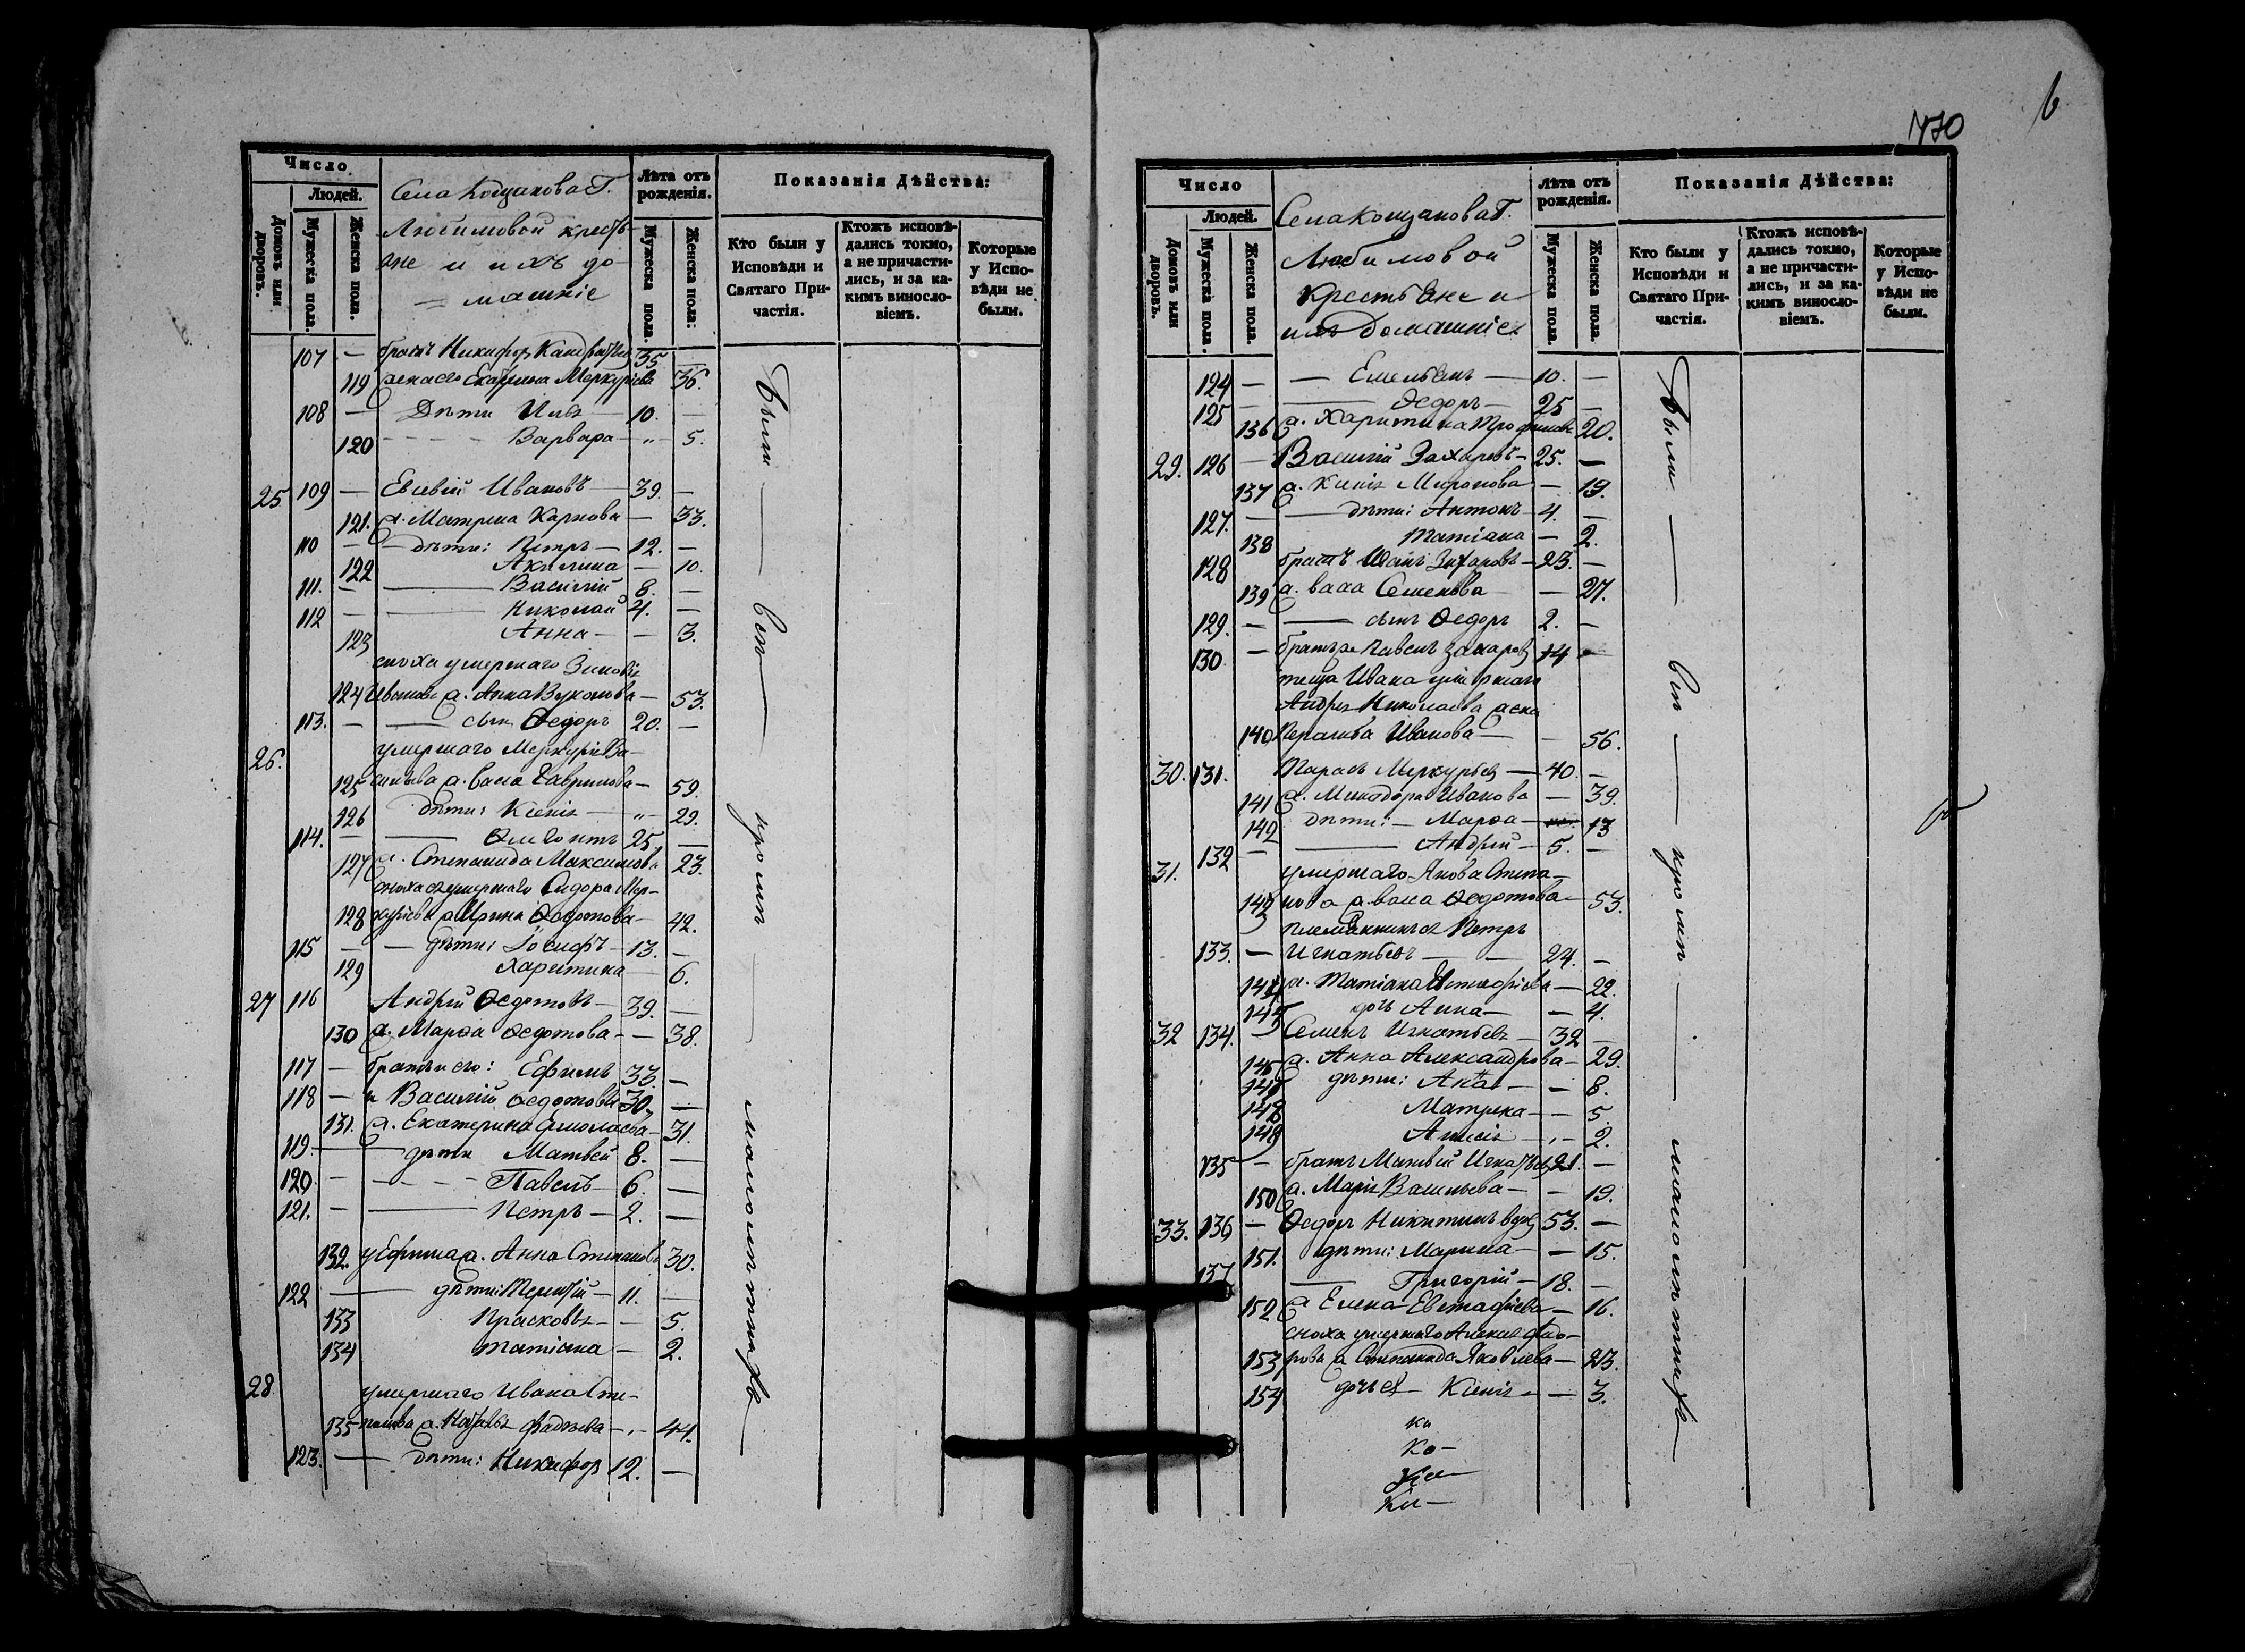 Число.
Людей.
Домовъ или дворовъ.
Мужеска пола.
Женска пола.
Села Кощакова Г.
Любимовой крестья-
ане и ихъ до-
машніе
Лѣта отъ рожденія.
Мужеска пола.
Женска пола:
Показанія Дѣйства:
Кто были у Исповѣди и Святаго При-частія.
Ктожъ исповѣ-дались токмо, а не причасти-лись, и за ка-кимъ винносло-віемъ.
Которые у Испо-вѣди не были.
107 — братъ Никифоръ 35 —
119 жена его Екатерина Меркуріева 36.
108 — Дѣти Илья 10. —
120 — Варвара — „ — 5.
25 109 — Евсевій Ивановъ — 39. —
121. ж. Матрена Карпова — 33.
110 — дѣти: Петръ — 12. —
122 Акилина — 10.
111. — Василій 8. —
112 — Николай 4. —
123 Анна — — 3.
сноха умершаго Зиновія
124 Иванова ж. Анна Вуколова — 53.
113. — сынъ Ѳедоръ 20. —
26. умершаго Меркурія Ва-
125 сильева ж. Васса Гаврилова — 59.
126 дѣти: Ксенія — „ — 29.
114. — 25 —
127 ж. Степанида Максимова 23.
сноха ея умершаго Сидора Мер-
128 куріева ж. Ирина Ѳедотова — 42.
115 — дѣти: Іосифъ — 13. —
129 Харитина — 6.
27 116 Андрей Ѳедотовъ — 39. —
130 ж. Марѳа Ѳедотова — — 38.
117 — братья его: Ефимъ 33. —
118 — и Василій Ѳедотовы 30. —
131. ж. Екатерина Ермолаева — 31.
119. — дѣти Матвей 8. —
120 — Павелъ — 6. —
121. — Петръ — 2. —
132. у Ефима ж. Анна Степанова 30.
122 — дѣти: Терентій — 11. —
133 Прасковья — — 5.
134 Татіана — 2.
28 умершаго Ивана Сте-
135 панова ж. Наталья Фадѣева — „ — 44.
123. — дѣти: Никифоръ 12. —
Были — всѣ — кромѣ — малолѣтнихъ —
470
6
Число
Людей.
Домовъ или дворовъ.
Мужеска пола.
Женска пола.
Села Кощакова Г.
Любимовой
Крестьяне и
ихъ домашніе
Лѣта отъ рожденія.
Мужеска пола.
Женска пола.
Показанія Дѣйства:
Кто были у Исповѣди и Святаго При-частія.
Ктожъ исповѣ-дались токмо, а не причасти-лись, и за ка-кимъ винносло-віемъ.
Которые у Испо-вѣди не были.
124 — — Емельянъ — 10. —
125 — Ѳедоръ — 25 —
136 ж. Харитина Трофимова 20.
29. 126 — Василій Захаровъ — 25. —
137 ж. Ксенія Миронова — 19.
127. — дѣти: Антонъ — 4. —
138 Татіана — 2.
128 братъ Иванъ Захаровъ — 23. —
139 ж. васса Семенова — 27.
129. — сынъ Ѳедоръ 2. —
130 — братъ же Павелъ Захаровъ 14 —
теща Ивана умершаго
Андрея Николаева жена
140 Иванова — — 56.
30. 131. Тарасъ Меркурьевъ — 40. —
141 ж. Минодора Иванова — 39.
142 дѣти: — Марѳа — 13
132 — Андрей — 5. —
31. умершаго Якова Степа-
142 нова ж. васса Ѳедотова — 53.
племянникъ ея Петръ
133. — Игнатьевъ — 24. —
144 ж. Татіана Евстафіева — 22.
145 дочь Анна — — 4.
32 134. — Семенъ Игнатьевъ — 32 —
146 ж. Анна Александрова — 29.
147 дѣти: Анна — — 8.
148 Матрена — — 5.
149 Анисія — „ — 2.
135 — братъ Матвей Игнатьевъ 21. —
150 ж. Марія Васильева — — 19.
33. 136 — Ѳедоръ Никитинъ вдовъ 53. —
151. дѣти: Марина — — 15.
137 — Григорій — 18. —
152 ж. Елена Евстафіева — 16.
сноха умершаго Алексея Ѳедо-
153 рова ж. Степанида Яковлева — 23.
154 дочь ея — Ксенія — — 3.
ка
Ка —
Ка —
Ка —
Были — всѣ — кромѣ — малолѣтнихъ —